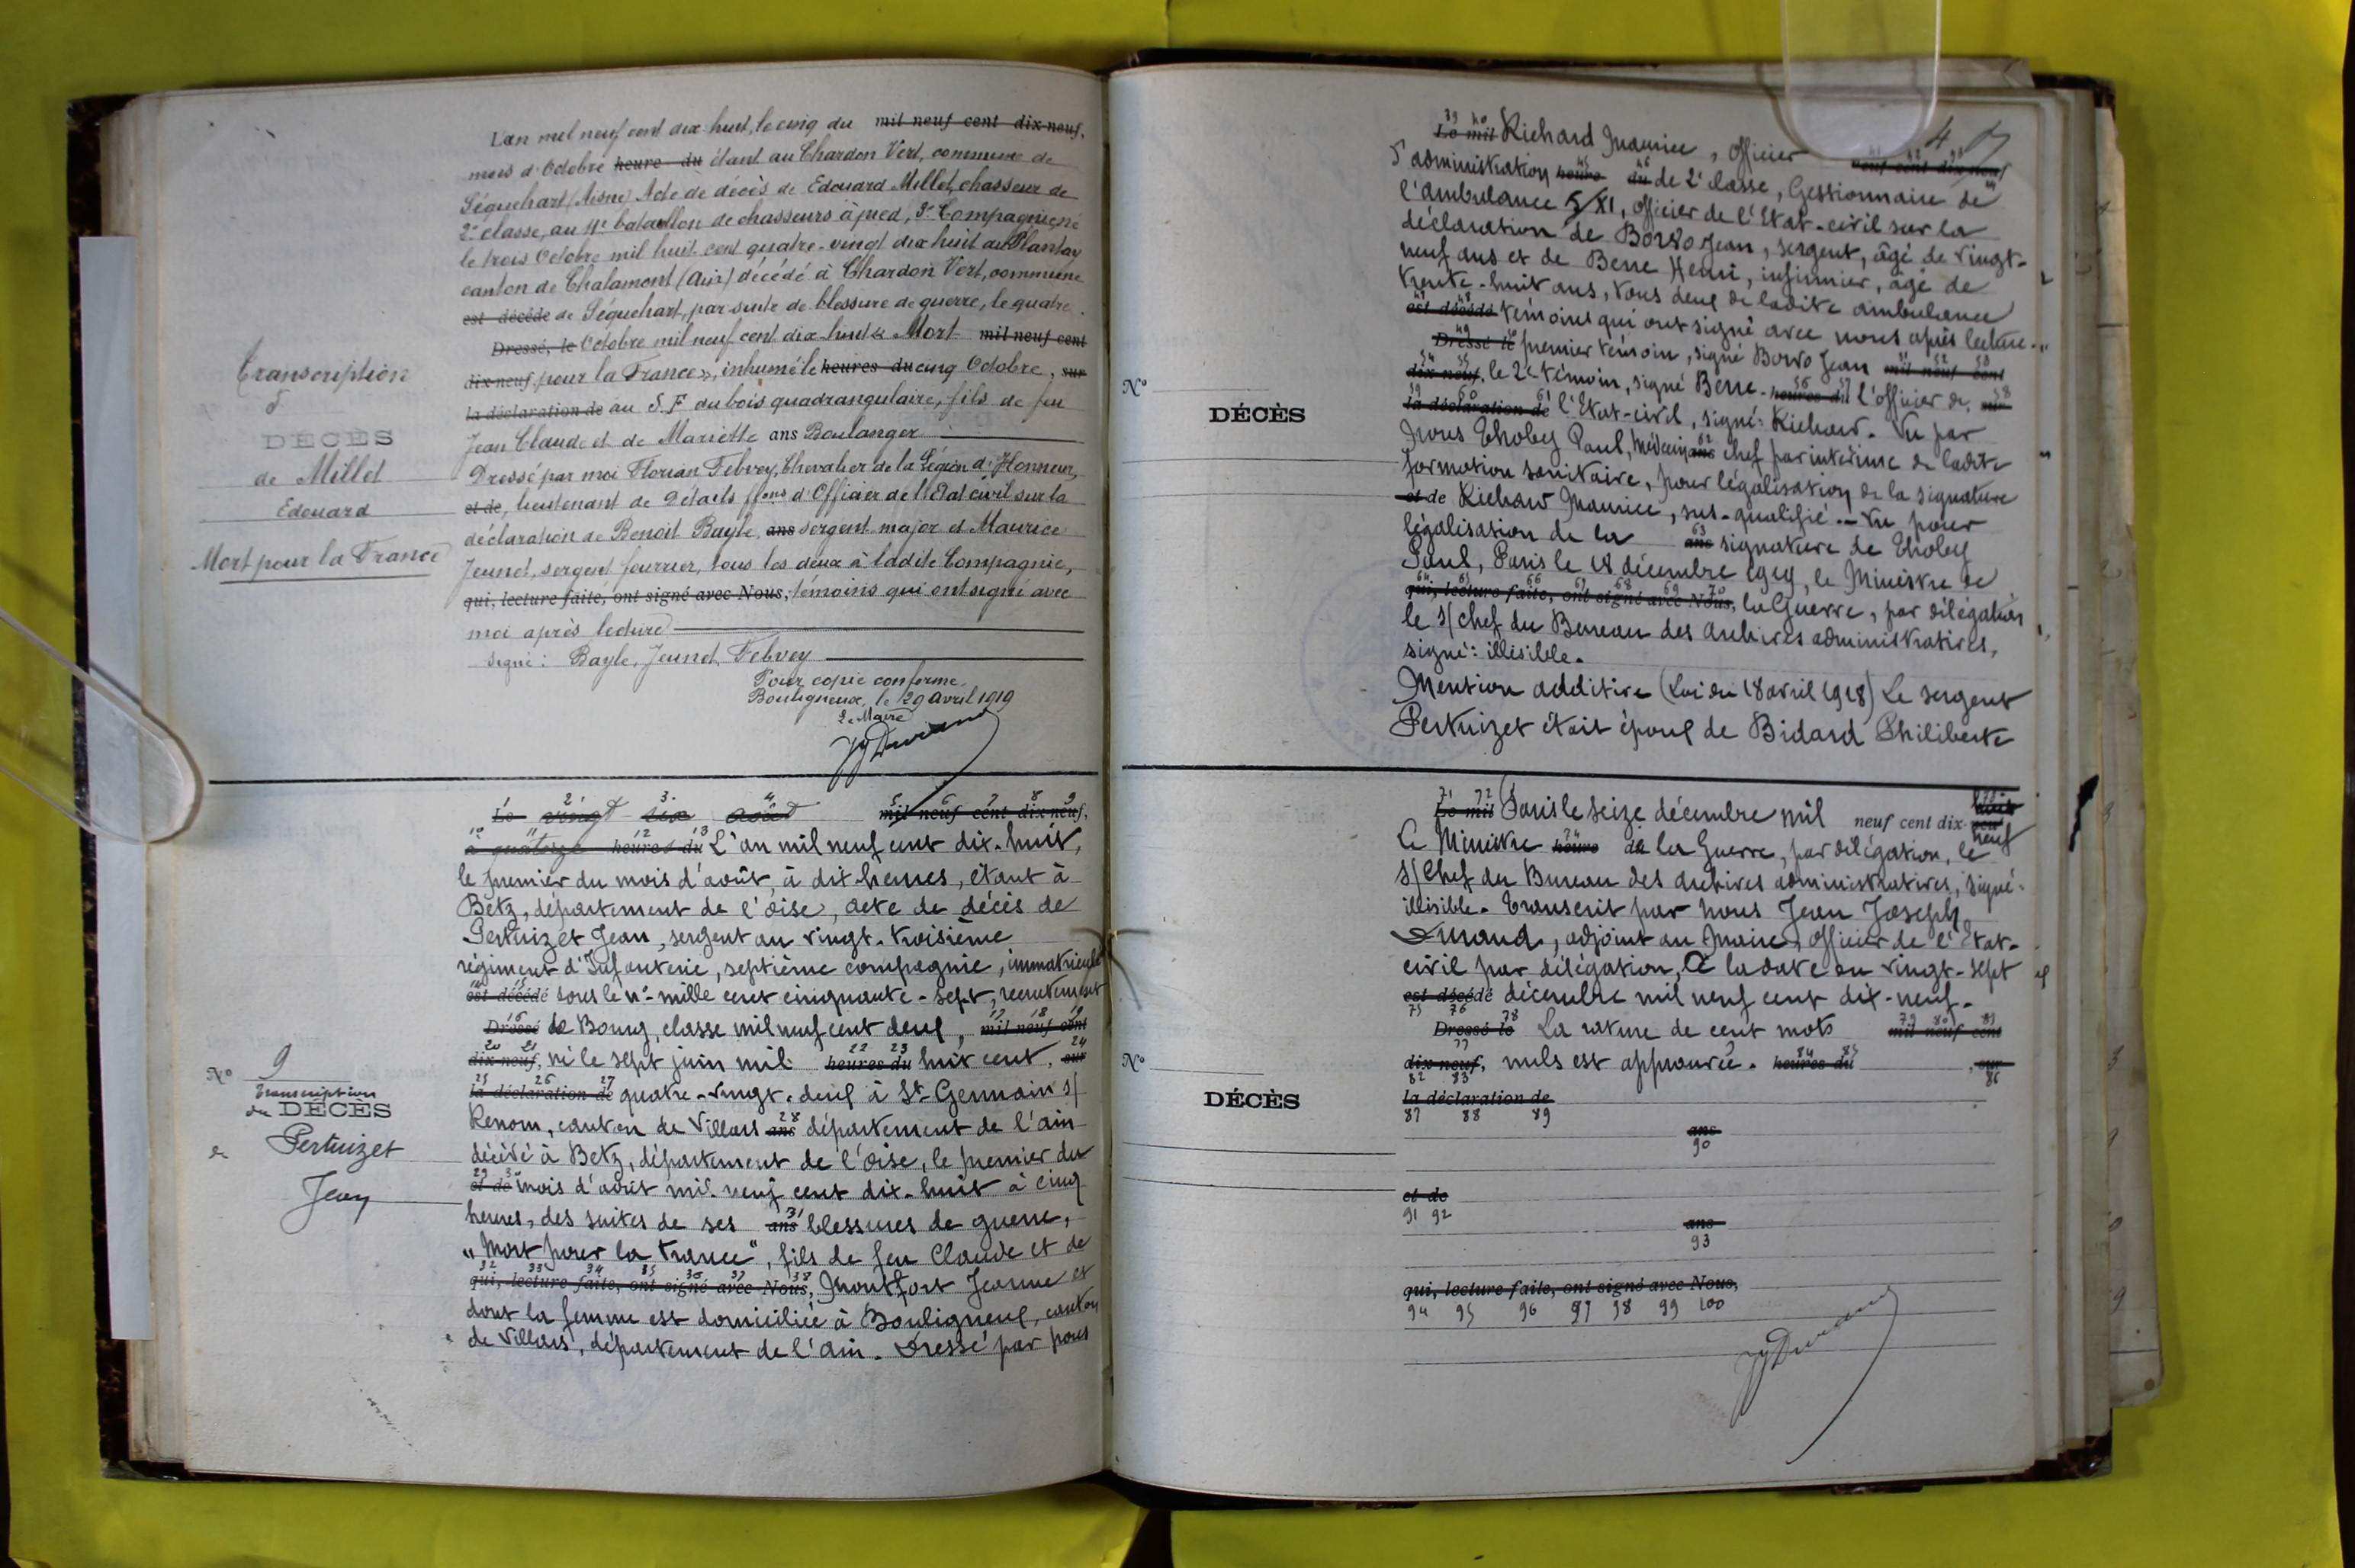 L'an mil neuf cent dix-huit, le cinq du mil neuf cent dix-neuf,
mois d'Octobre heure du étant au Chardon Vert, commune de
Séquehart (Aisne) Acte de décès de Edouard Millet, chasseur de
2e classe, au 11e bataillon de chasseurs à pied, 3e Compagnie, né
le trois Octobre mil huit cent quatre-vingt dix huit au Plantay
canton de Chalamont (Ain) décédé à Chardon Vert, commune
est décédé de Séquehart, par suite de blessure de guerre, le quatre
Dressé, le Octobre mil neuf cent dix-huit « Mort mil neuf cent
dix-neuf, pour la France », inhumé le heures du cinq Octobre, sur
la déclaration de au S. F du bois quadrangulaire, fils de feu
Jean Claude et de Mariette ans Boulanger
Dressé par moi Florian Febvey, Chevalier de la Légion d'Honneur,
et de, lieutenant de Détails ffons d'Officier de l'Etat civil sur la
déclaration de Benoit Bayle, ans sergent major et Maurice
Jeunet, sergent fourrier, tous les deux à ladite Compagnie,
qui, lecture faite, ont signé avec Nous, témoins qui ont signé avec
moi après lecture
signé : Bayle, Jeunet, Febvey
Pour copie conforme,
Bouligneux, le 29 Avril 1919
Le Maire
JJ Durand
Transcription
d
DÉCÈS
de Millet
Edouard
Mort pour la France
1 2 3 4 5 6 7 8 9
Le vingt six août mil neuf cent dix-neuf,
10 11 12 13
à quatorze heures du L'an mil neuf cent dix-huit,
le premier du mois d'août, à dix heures, étant à
Betz, département de l'Oise, acte de décès de
Pertuizet Jean, sergent au vingt-troisième
régiment d'Infanterie, septième compagnie, immatriculé
14 15
est décédé sous le no mille cent cinquante-sept, recrutement
16 17 18 19
Dressé le de Bourg, classe mil neuf cent deux, mil neuf cent
20 21 22 23 24
dix-neuf, né le sept juin mil heures du huit cent, sur
25 26 27
la déclaration de quatre-vingt-deux à St Germain s/
28
Renom, canton de Villars ans département de l'Ain
décédé à Betz, département de l'Oise, le premier du
29 30
et de mois d'août mil neuf cent dix-huit à cinq
31
heures, des suites de ses ans blessures de guerre,
"Mort pour la France", fils de feu Claude et de
32 33 34 35 36 37 38
qui, lecture faite, ont signé avec Nous, Montfort Jeanne et
dont la femme est domiciliée à Bouligneux, canton
de Villars, département de l'Ain. Dressé par nous
No 9
Transcription
du DÉCÈS
de Pertuizet
Jean
39 40
Le mil Richard Maurice, Officier
47
41 42 43 44
neuf cent dix-neuf
45 46
d'administration heure du de 2e classe, Gestionnaire de
l'ambulance 5/XI, Officier de l'Etat-civil sur la
déclaration de Bordo Jean, sergent, âgé de vingt-
neuf ans et de Berre Henri, infirmier, âgé de
trente-huit ans, tous deux de ladite ambulance
47 48
est décédé témoins qui ont signé avec nous après lecture.
49
Dressé le premier témoin, signé Bordo Jean mil neuf cent
54 55 56 57 58
dix-neuf, le 2e témoin, signé Berre. heures du L'officier de, sur
59 60 61
la déclaration de l'Etat-civil, signé: Richard. Vu par
62
Nous Thobey Paul, Médecin ans chef par intérime de ladite
formation sanitaire, pour légalisation de la signature
et de Richard Maurice, sus-qualifié. - Vu pour
63
légalisation de la ans signature de Thobey
Paul, Paris le 18 décembre 1919, le Ministre de
64 65 66 67 68 69 70
qui, lecture faite, ont signé avec Nous, la Guerre, par délégation
le s/ chef du Bureau des Archives administratives,
signé: illisible.
Mention additive (Loi du 18 avril 1918) Le sergent
Pertuizet était époux de Bidard Philiberte
No
DÉCÈS
71 72
Le mil Paris le seize décembre mil neuf cent dix-neuf
neuf
Le Ministre heure de la Guerre, par délégation, le
s/ chef du Bureau des Archives administratives, signé:
illisible. Transcrit par nous Jean Joseph
Durand, adjoint au Maire, Officier de l'Etat-
civil par délégation, à la date du vingt-sept
est décédé décembre mil neuf cent dix-neuf.
75 76
Dressé le La rature de cent mots mil neuf cent
77 78 79 80 81
dix-neuf, nuls est approuvée. heures du , sur
82 83 84 85 86
la déclaration de
87 88 89
ans
90
et de
91 92
ans
93
qui, lecture faite, ont signé avec Nous,
94 95 96 97 98 99 100
JJ Durand
No
DÉCÈS